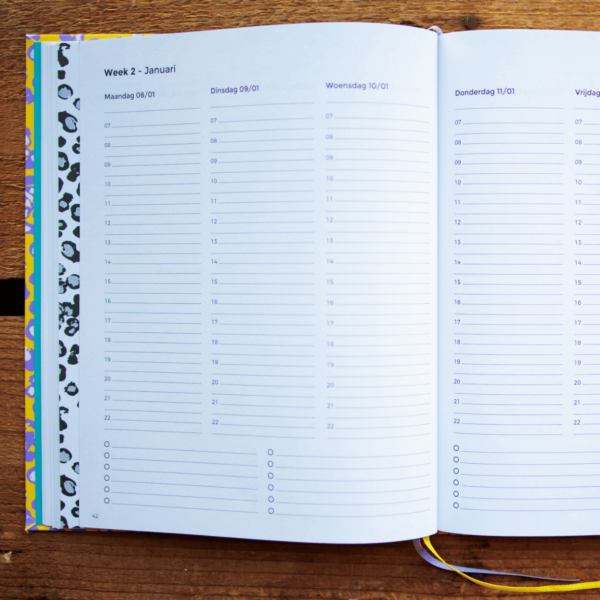 Week 2 - Januari
Maandag 08/01
07
08
09
10
11
12
13
14
15
16
17
18
19
20
21
22
Dinsdag 09/01
07
08
09
10
11
12
13
14
15
16
17
18
19
20
21
22
Woensdag 10/01
07
08
09
10
11
12
13
14
15
16
17
18
19
20
21
22
42
Donderdag 11/01
07
08
09
10
11
12
13
14
15
16
17
18
19
20
21
22
Vrijdag
07
08
09
10
11
12
13
14
15
16
17
18
19
20
21
22